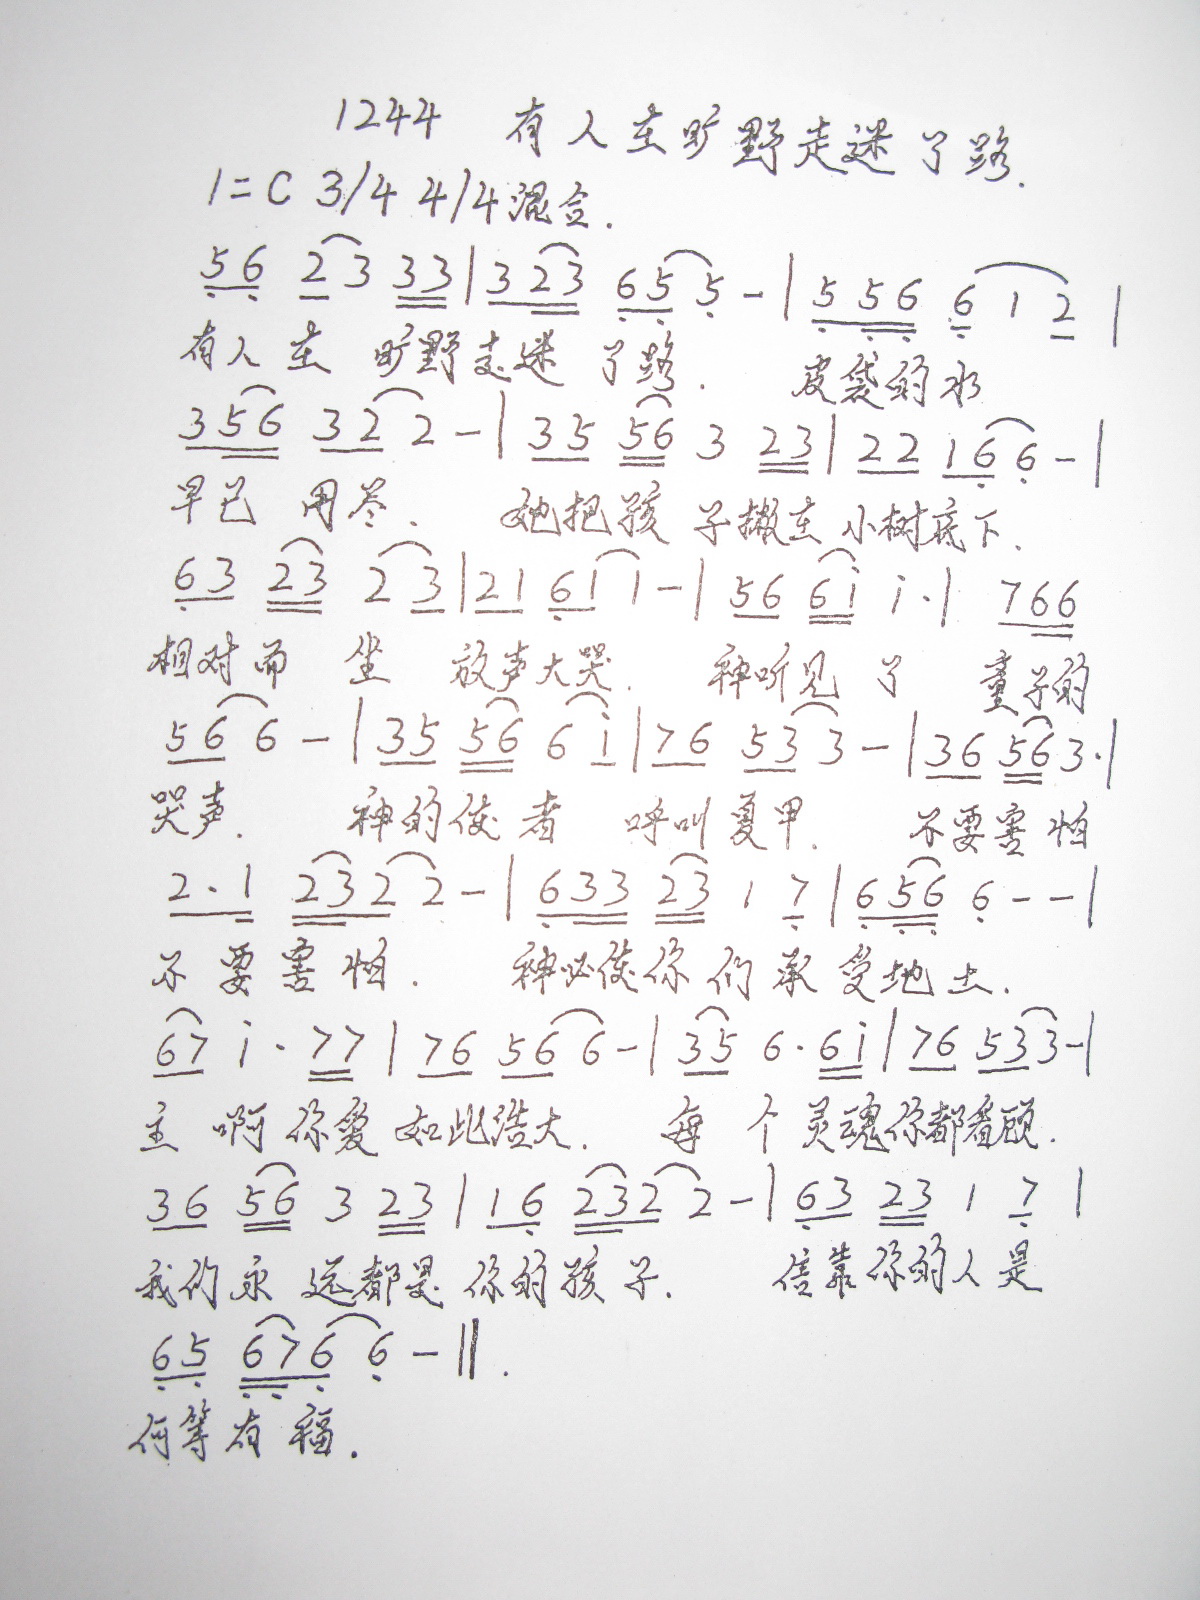 1244 有人在旷野走迷了路.
1=C 3/4 4/4混合.
56 23 33|3 23 65 5 -|5 56 6 1 2|
有人在 旷野走迷 了路. 皮袋的水
356 32 2 -|35 56 3 23|22 16 6 -|
早已 用尽. 她把孩 子撇在 小树底下.
63 23 2 3|21 61 1 -|56 6i i·| 766
相对而 坐 放声大哭. 神听见 了 童子的
56 6 -|35 56 6 i|76 53 3 -|36 56 3·|
哭声. 神的使者 呼叫夏甲. 不要害怕
2·1 232 2 -|633 23 1 7|656 6 - -|
不要害怕. 神必使你们承受地土.
67 i· 77|76 56 6 -|35 6· 6i|76 53 3 -|
主啊你爱 如此浩大. 每个灵魂你都看顾.
36 56 3 23|16 232 2 -|63 23 1 7|
我们永 远都是 你的孩子. 信靠你的人是
65 676 6 -‖.
何等有福.